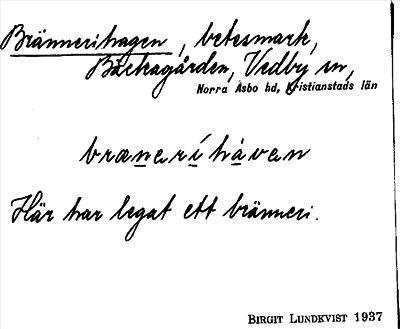 Brännerihagen, betesmark,
Bäckagården, Vedby sn,
Norra Åsbo hd, Kristianstads län
brænarihåvan
Här har legat ett bränneri.
BIRGIT LUNDKVIST 1937